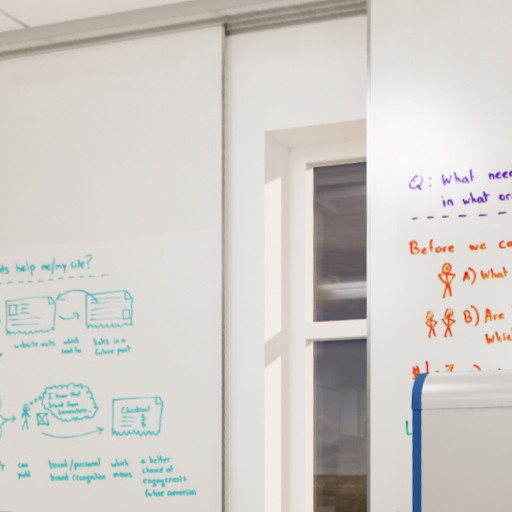 ts help me/my site?
website visits what lead to links in a future post
I know that brand from somewhere..
Checkout
can build brand/personal brand recognition what means a better chance of engagements future conversion
Q: What need
in what or
Before we co
A) What
B) Are
Which